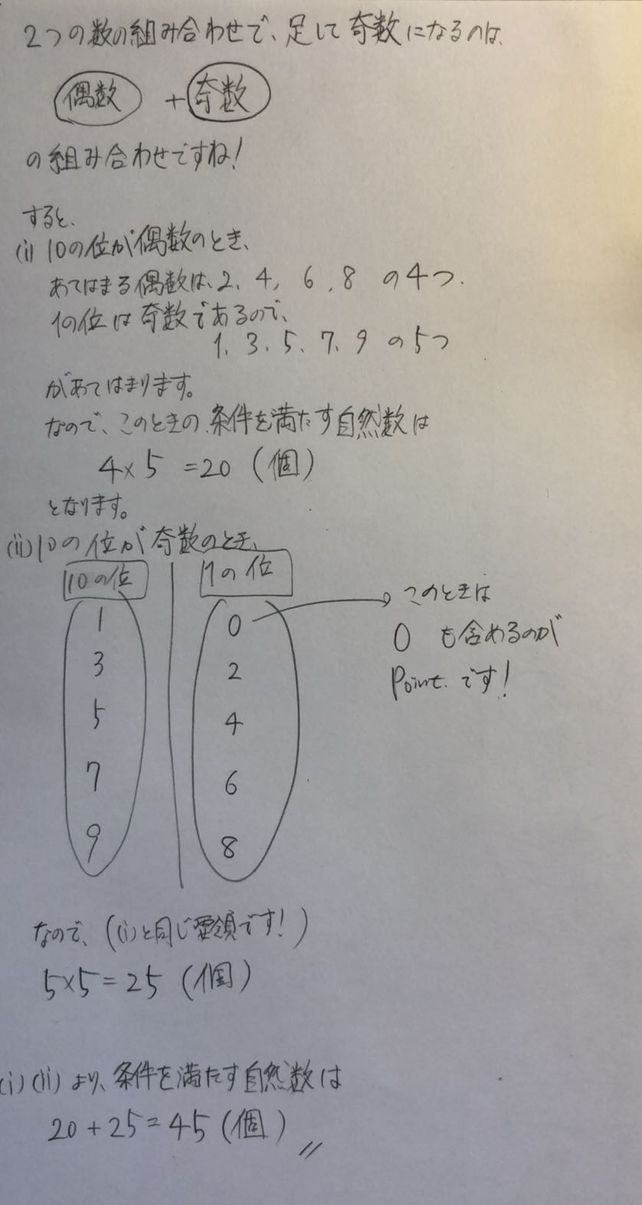 2つの数の組み合わせで、足して奇数になるのは、
偶数 + 奇数
の組み合わせですね!
すると、
(i) 10の位が偶数のとき、
あてはまる偶数は、2、4、6、8 の4つ.
1の位は奇数であるので、
1、3、5、7、9 の5つ
があてはまります。
なので、このときの条件を満たす自然数は
4×5 =20 (個)
となります。
(ii) 10の位が奇数のとき、
10の位 1の位
1 0 このときは
3 2 0 も含めるのが
5 4 Point. です!
7 6
9 8
なので、((i)と同じ要領です!)
5×5=25 (個)
(i)(ii)より、条件を満たす自然数は
20+25=45 (個)